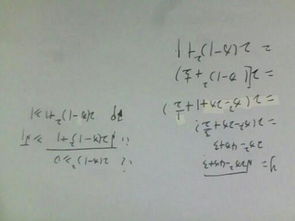 y=√(2x²-4x+3)
2x²-4x+3
=2(x²-2x+3/2)
=2(x²-2x+1+1/2)
=2[(x-1)²+1/2]
=2(x-1)²+1
∵ 2(x-1)²≥0
∴ √(2(x-1)²+1) ≥√1
即 2(x-1)²+1≥1